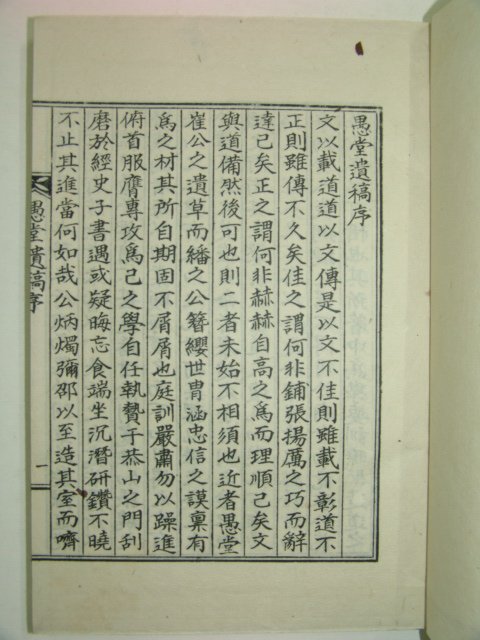 愚堂遺稿序
文以載道道以文傳是以文不佳則雖載不彰道不
正則雖傳不久矣佳之謂何非鋪張揚厲之巧而辭
達已矣正之謂何非赫赫自高之爲而理順已矣文
與道備然後可也則二者未始不相須也近者愚堂
崔公之遺草而繙之公簪纓世冑涵忠信之謨稟有
爲之材其所自期固不屑屑也庭訓嚴肅勿以躁進
俯首服膺專攻爲己之學自任執贄于恭山之門刮
磨於經史子書遇或疑晦忘食端坐沉潛硏鑽不曉
不止其進當何如哉公炳燭彌卲以至造其室而嚌
愚堂遺稿序
一